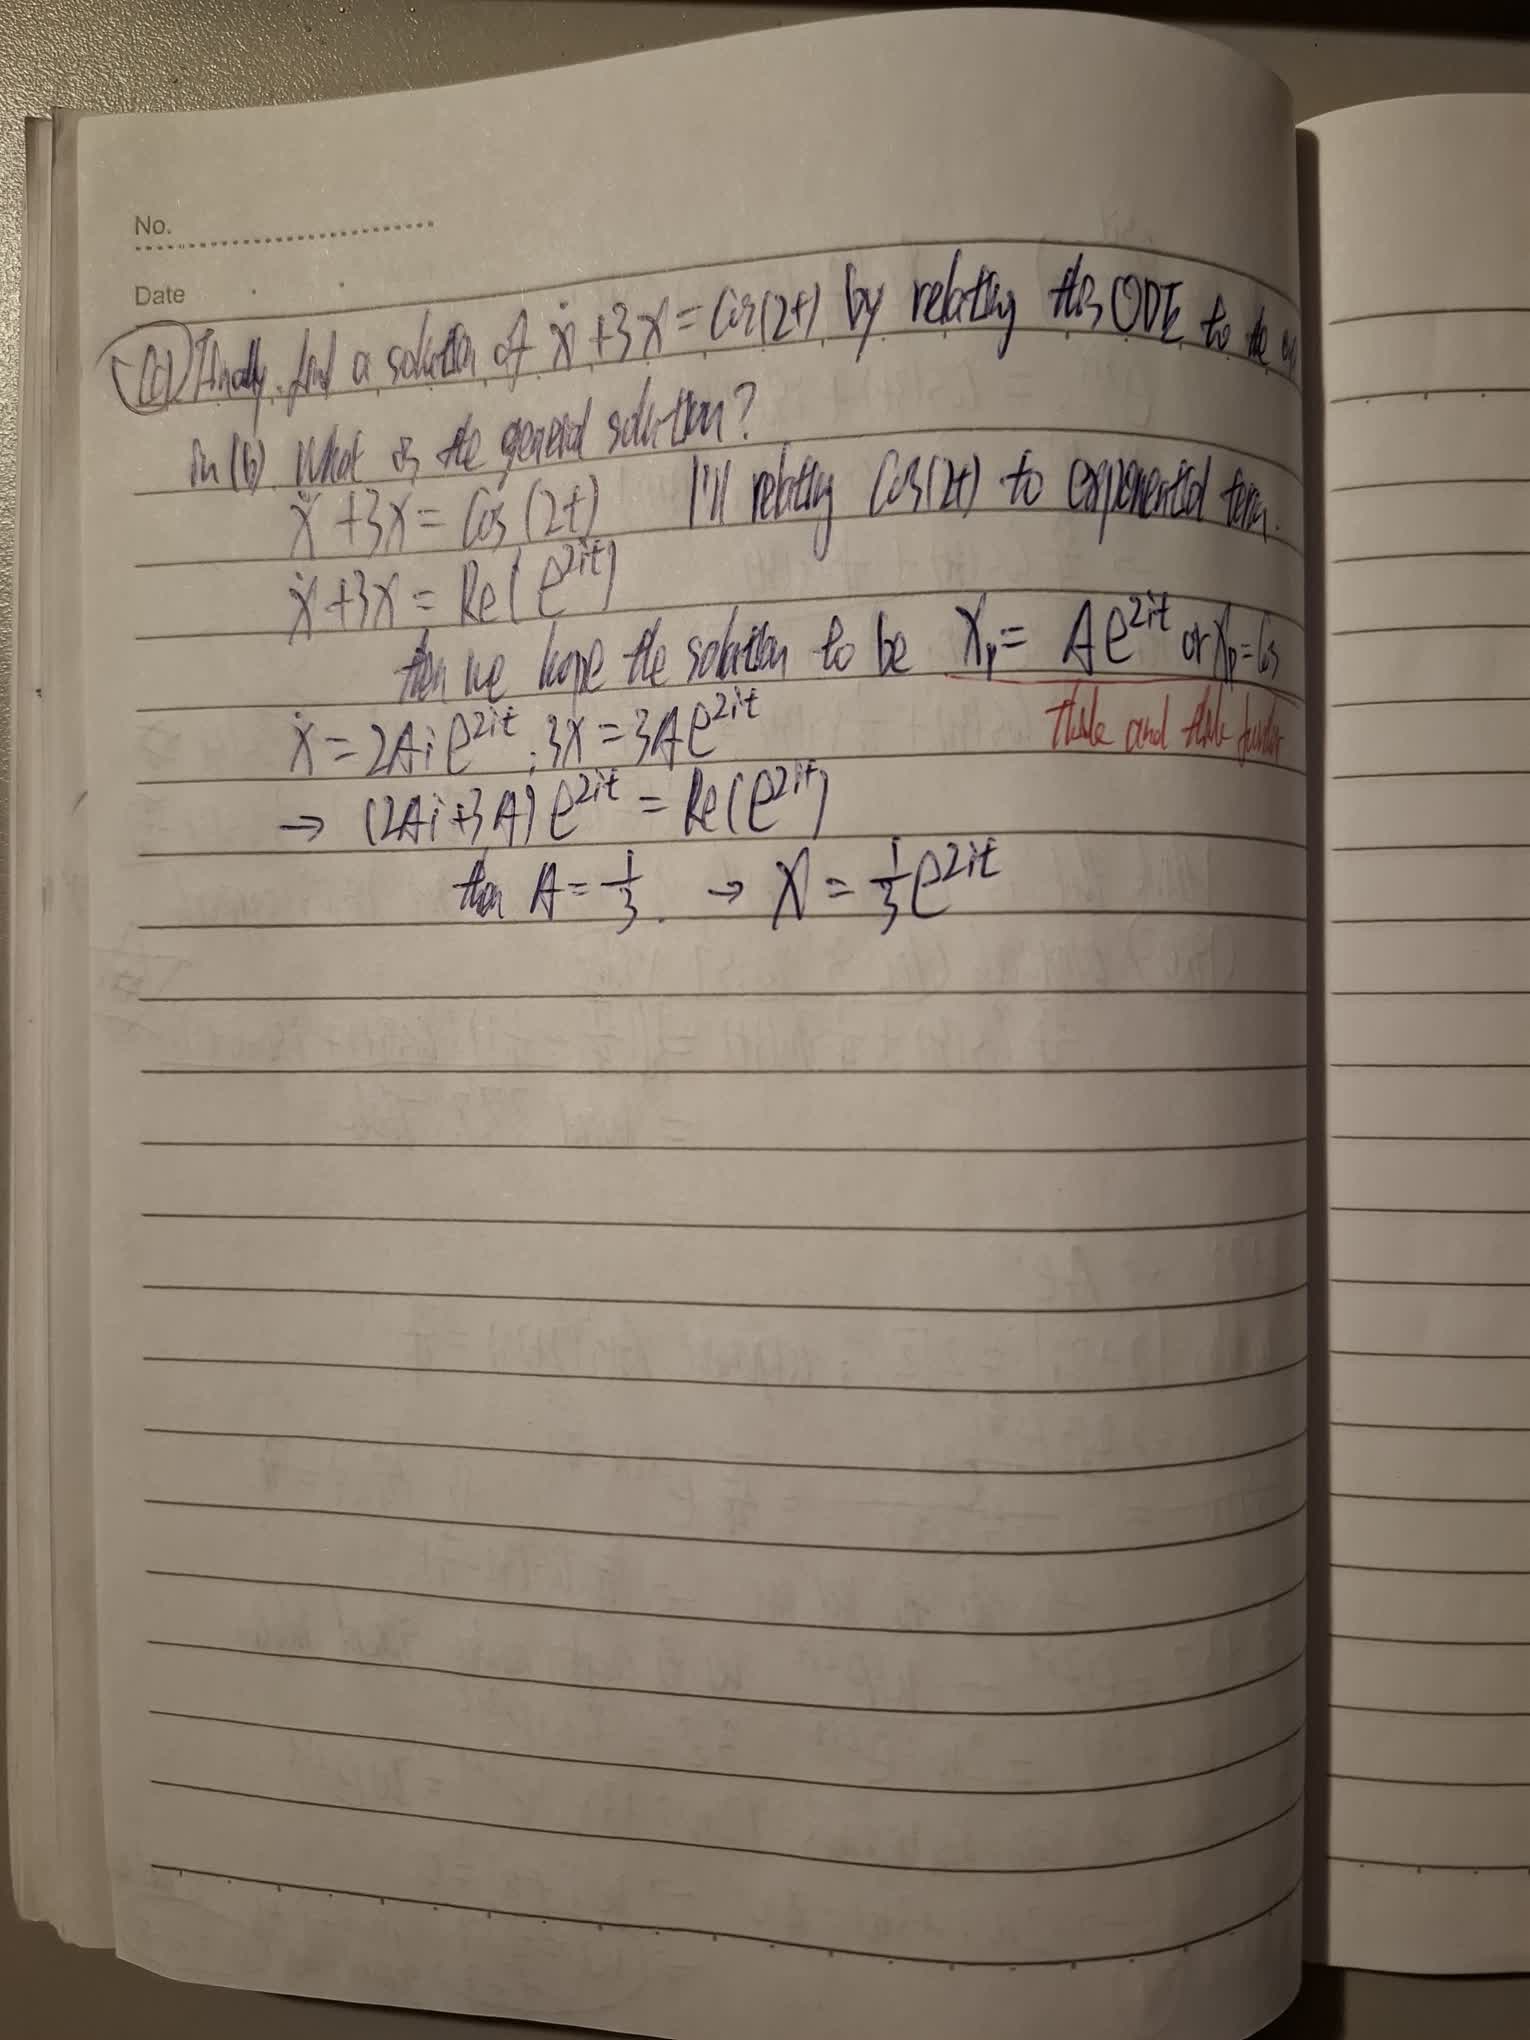 No.
Date
(c) Finally, find a solution of ẋ + 3x = Cos(2t) by relating this ODE to the
in (b). What is the general solution?
ẋ + 3x = Cos(2t) I'll relating Cos(2t) to exponential term.
ẋ + 3x = Re(e^{2it})
then we hope the solution to be Xp = Ae^{2it} or Xp = Cos
think and think further
ẋ = 2Aie^{2it}, 3x = 3Ae^{2it}
→ (2Ai + 3A)e^{2it} = Re(e^{2it})
then A = 1/3. → X = 1/3 e^{2it}